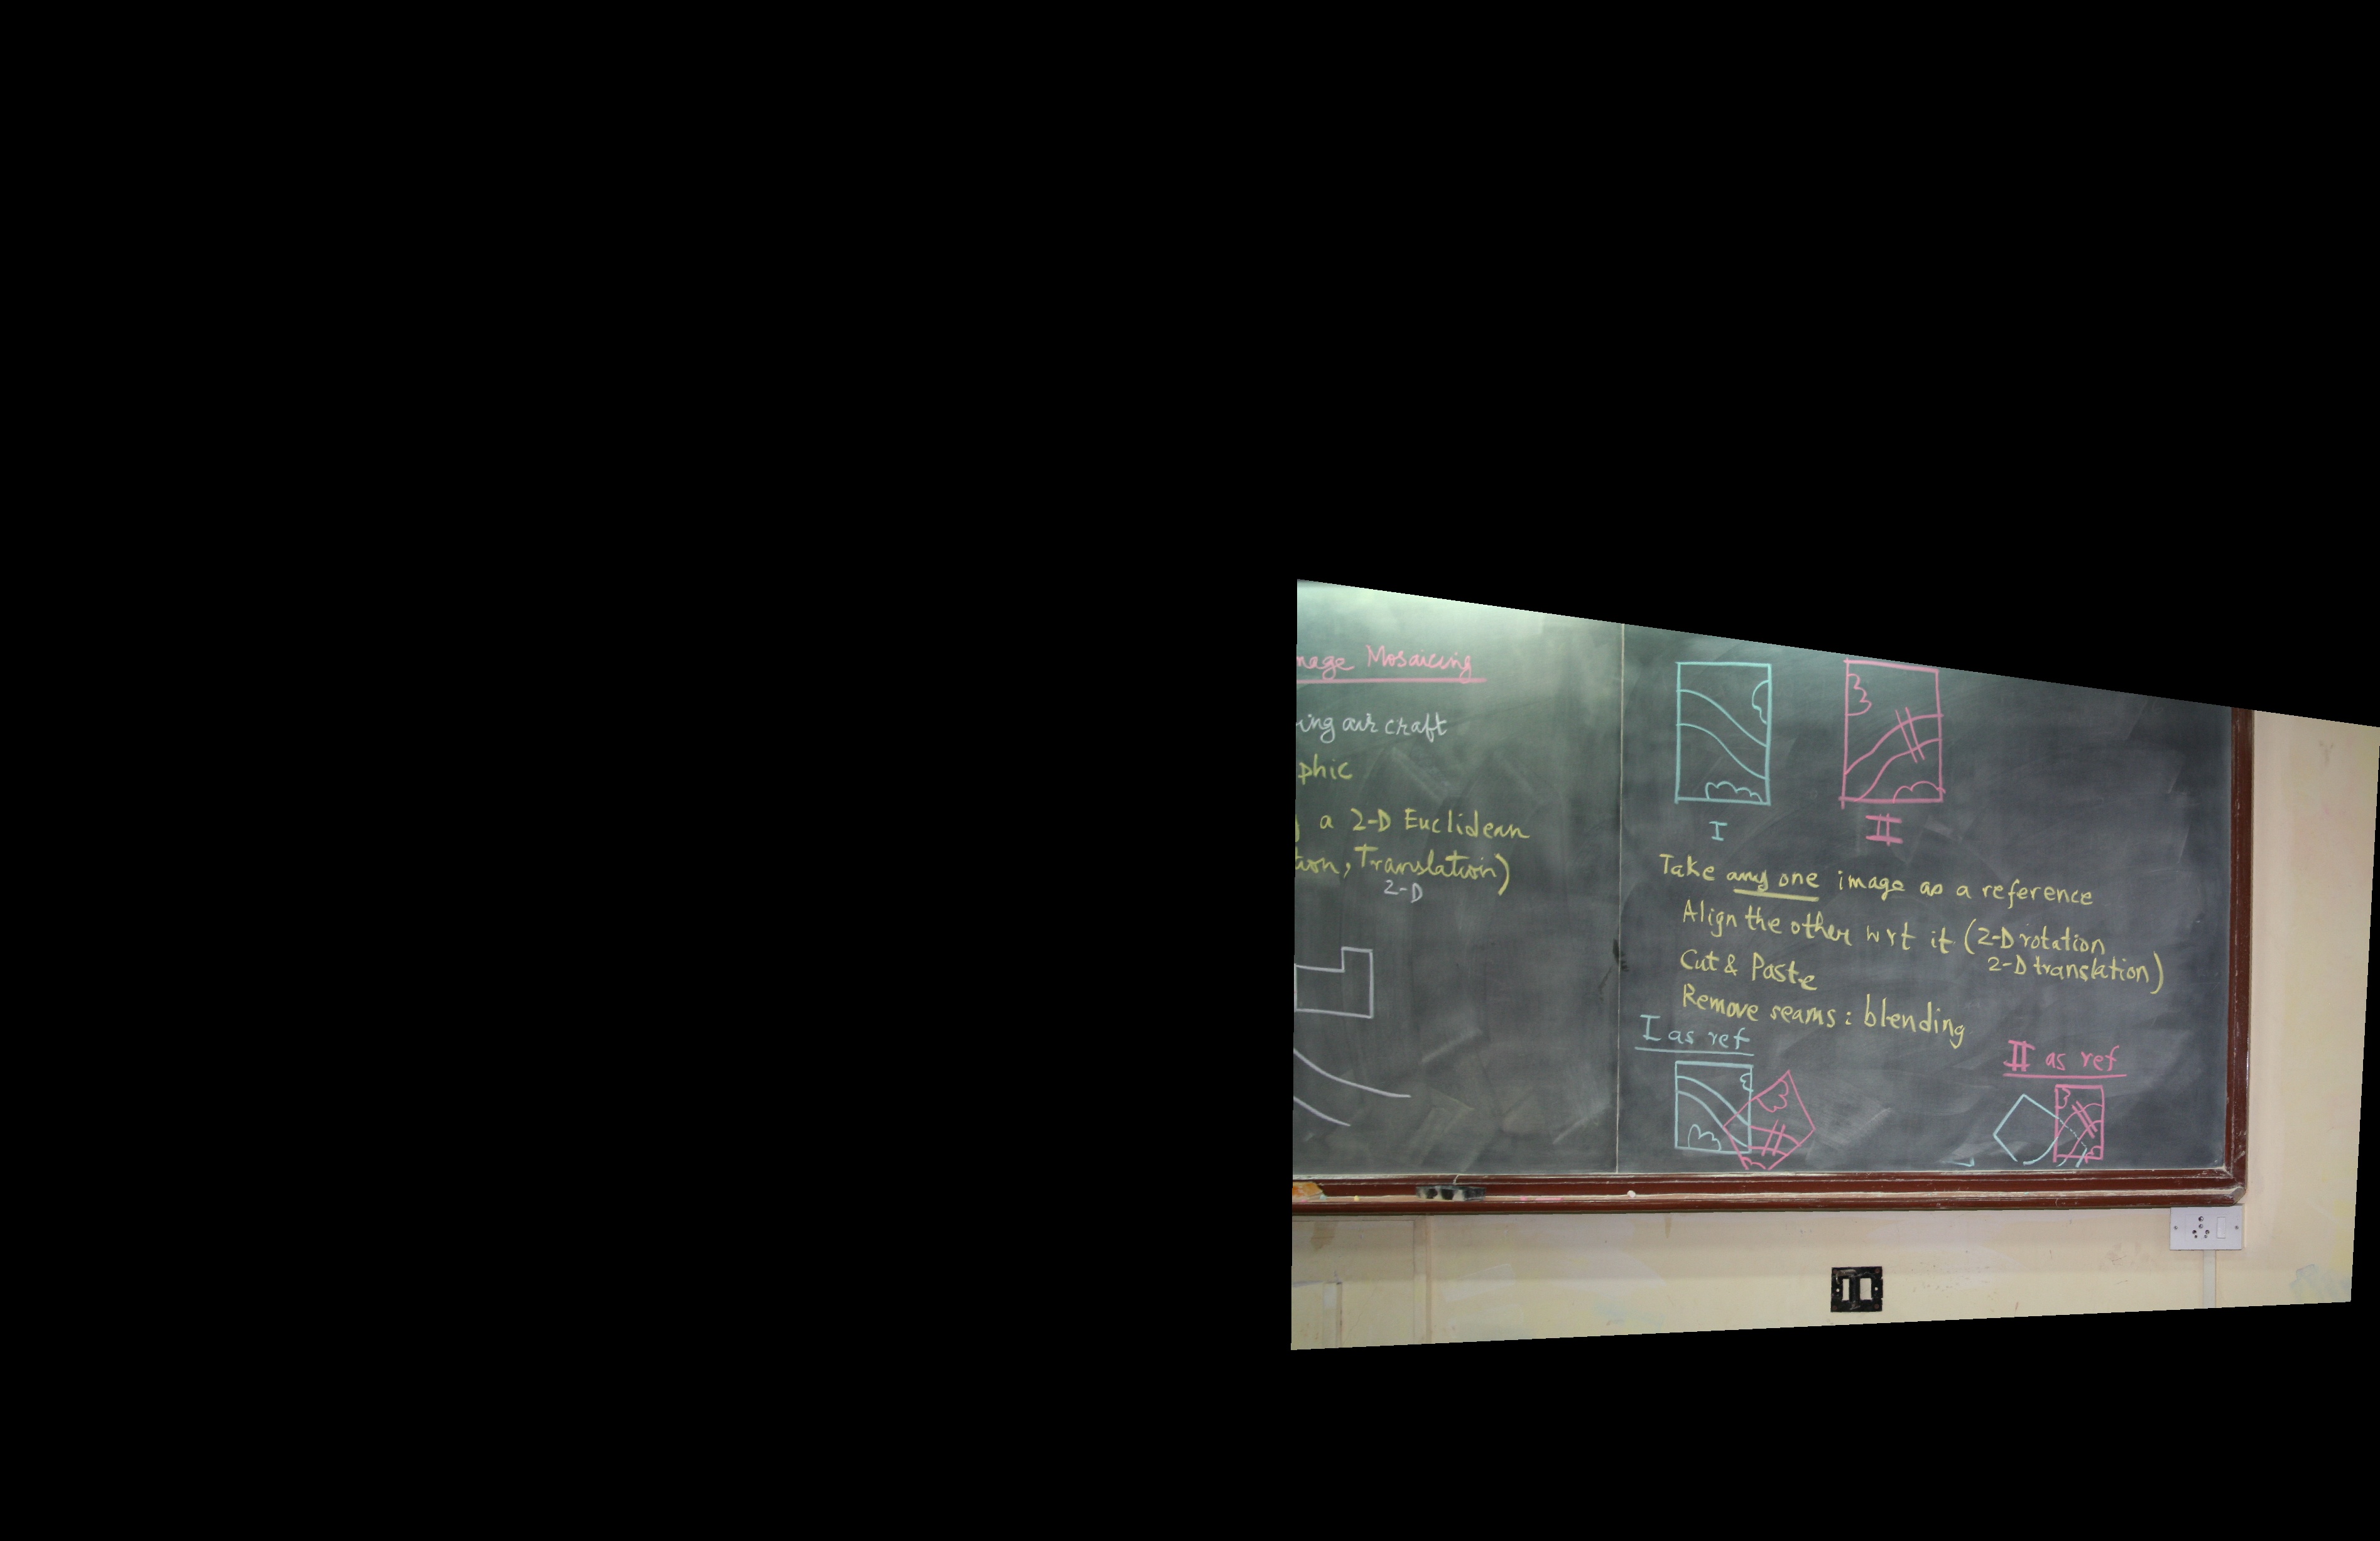 Mosaicing
air craft
a 2-D Euclidean
, Translation)
2-D
I
II
Take any one image as a reference
Align the other wrt it (2-D rotation
2-D translation)
Cut & Paste
Remove seams : blending
I as ref
II as ref